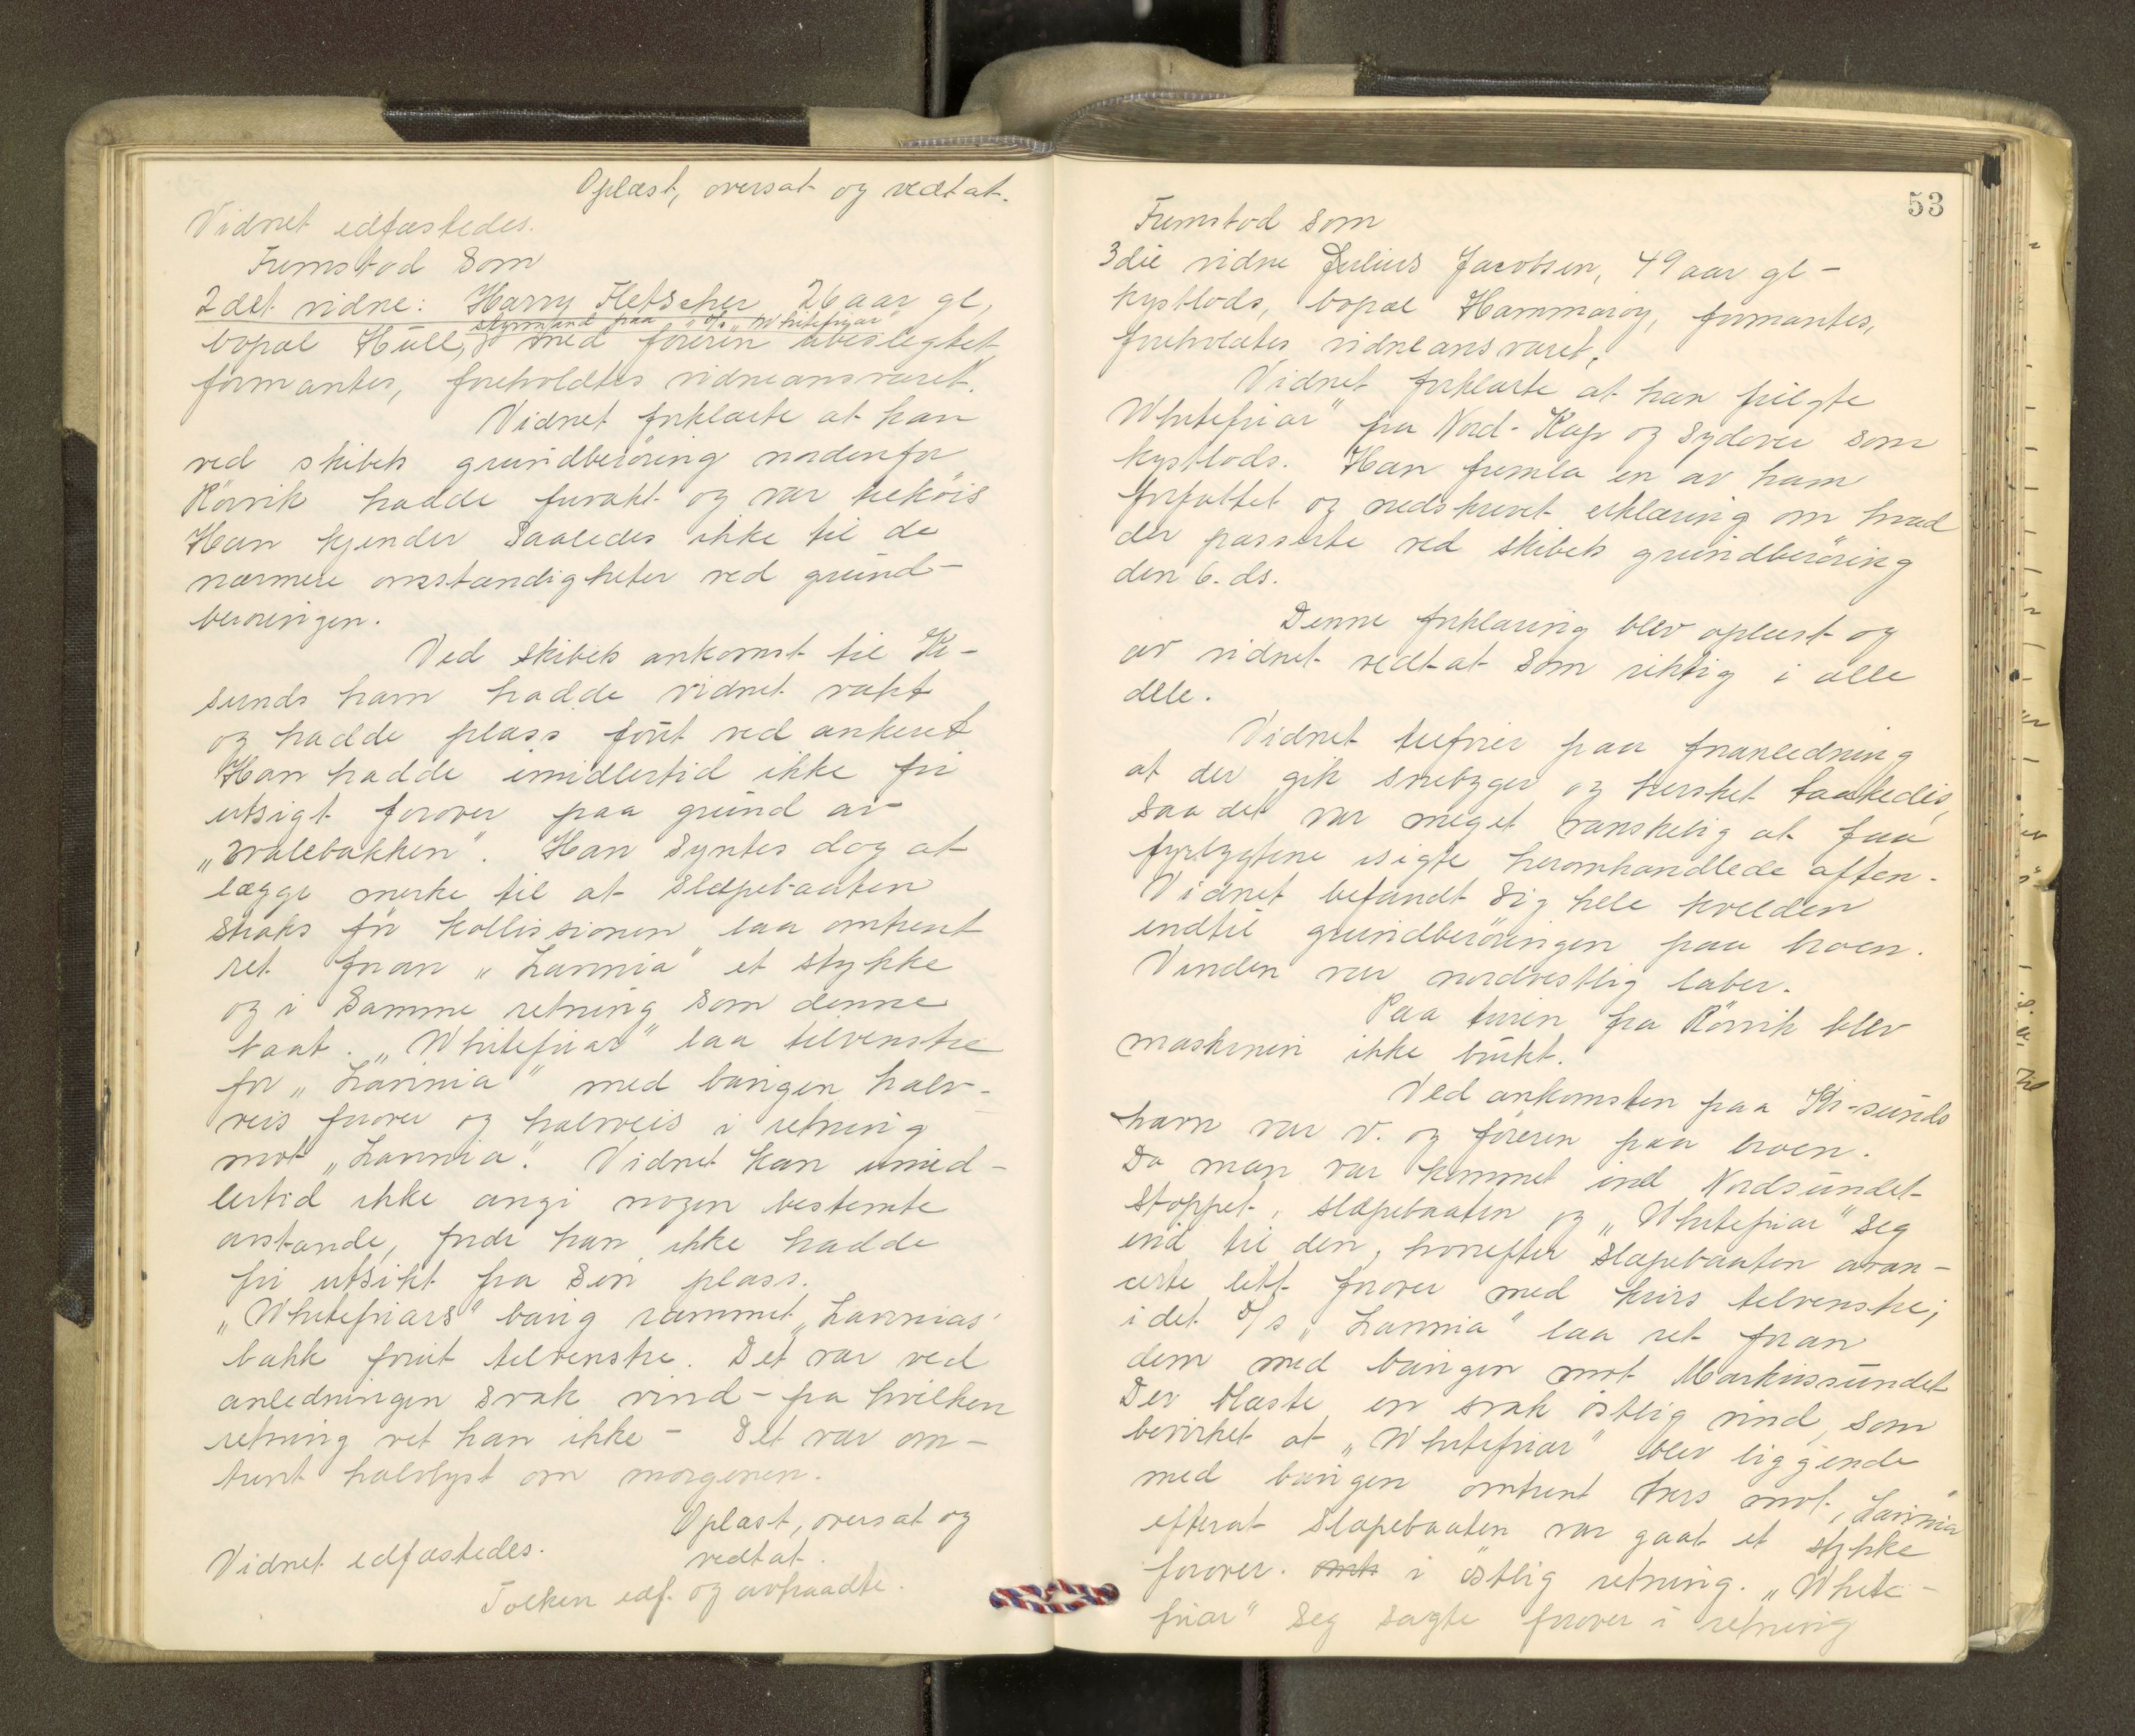 Oplæst, oversat og vedtat.
Vidnet edfæstedes.
Fremstod som
2det vidne: Harry Fletscher 26 aar gl,
styrmand paa "s/s „Whitefriar"
bopæl Hull, med føreren ubeslegtet
formantes, foreholdtes vidneansvaret.
Vidnet forklarte at han
ved skibets grundberöring nordenfor
Rörvik hadde frivakt og var tilkøis
Han kjender saaledes ikke til de
nærmere omstændigheter ved grund-
beröringen.
Ved skibets ankomst til Kr-
sunds havn hadde vidnet vakt
og hadde plass forut ved ankeret
Han hadde imidlertid ikke fri
utsigt forover paa grund av
„hvalebakken". Han syntes dog at
lægge merke til at slæpebaaten
straks för kollissionen laa omtrent
ret foran „Lavinia" et stykke
og i samme retning som denne
baat. „Whitefriar" laa tilvenstre
for „Lavinia" med baugen halv-
veis forover og halvveis i retning
mot „Lavinia". Vidnet kan imid-
lertid ikke angi nogen bestemte
avstande, fordi han ikke hadde
fri utsikt fra sin plass.
„Whitefriars" baug rammet „Lavinias"
bakk forut tilvenstre. Det var ved
anledningen svak vind - fra hvilken
retning vet han ikke - Det var om-
trent halvlyst om morgenen.
Oplæst, oversat og
Vidnet edfæstedes. vedtat.
Tolken edf. og avtraadte.
53
Fremstod som
3die vidne Julius Jacobsen, 49 aar gl -
kystlods, bopæl Hammarøy, formantes,
foreholdtes vidneansvaret.
Vidnet forklarte at han fulgte
Whitefriar" fra Nord-Kap og sydover som
kystlods. Han fremla en av ham
forfattet og nedskrevet erklæring om hvad
der passerte ved skibets grundberöring
den 6. ds.
Denne forklaring blev oplæst og
av vidnet vedtat som riktig i alle
dele.
Vidnet tilföier paa foranledning
at der gik snebyger og hersket taakedis,
saa det var meget vanskelig at faa
fyrlygtene isigte heromhandlede aften.
Vidnet befandt sig hele kvelden
indtil grundberöringen paa broen.
Vinden var nordvestlig laber.
Paa turen fra Rörvik blev
maskinen ikke brukt.
Ved ankomsten paa Kr-sunds
havn var v. og föreren paa broen.
Da man var kommet ind Nordsundet
stoppet, slæpebaaten og „Whitefriar" seg
ind til den, hvorefter slæpebaaten avan-
certe litt forover med kurs tilvenstre;
idet s/s „Lavinia" laa ret foran
dem med baugen mot Markussundet
Der blaste en svak östlig vind, som
bevirket at „Whitefriar" blev liggende
med baugen omtrent tvers mot „Lavinia"
efterat slæpebaaten var gaat et stykke
forover. i östlig retning. „White-
friar" seg sagte forover i retning